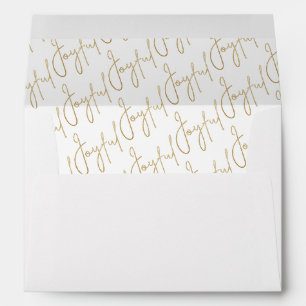 Joyful Joyful Joyful Joyful Joyful
Joyful Joyful Joyful Joyful Joyful